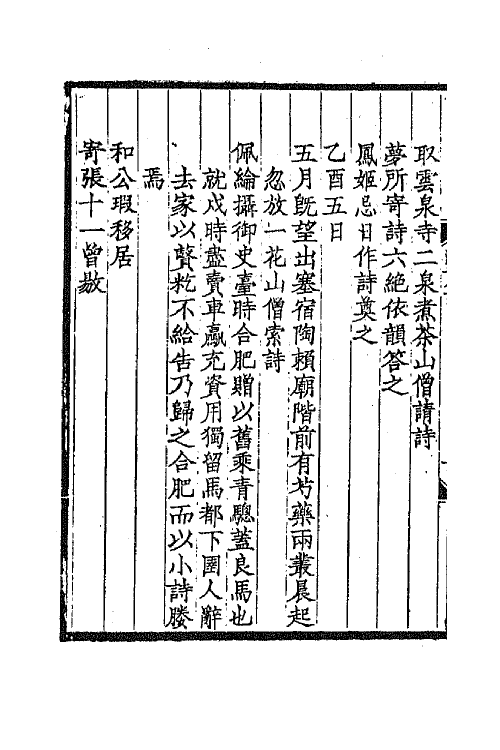 取雲泉寺二泉煮茶山僧請詩
夢所寄詩六絶依韻答之
鳳姬忌日作詩奠之
乙酉五日
五月旣望出塞宿陶賴廟階前有芍藥兩叢晨起
忽放一花山僧索詩
佩綸攝御史臺時合肥贈以舊乘青驄蓋良馬也
就戍時盡賣車驘充資用獨留馬都下圉人辭
去家以聱籺不給告乃歸之合肥而以小詩媵
焉
和公瑕移居
寄張十一曾敭